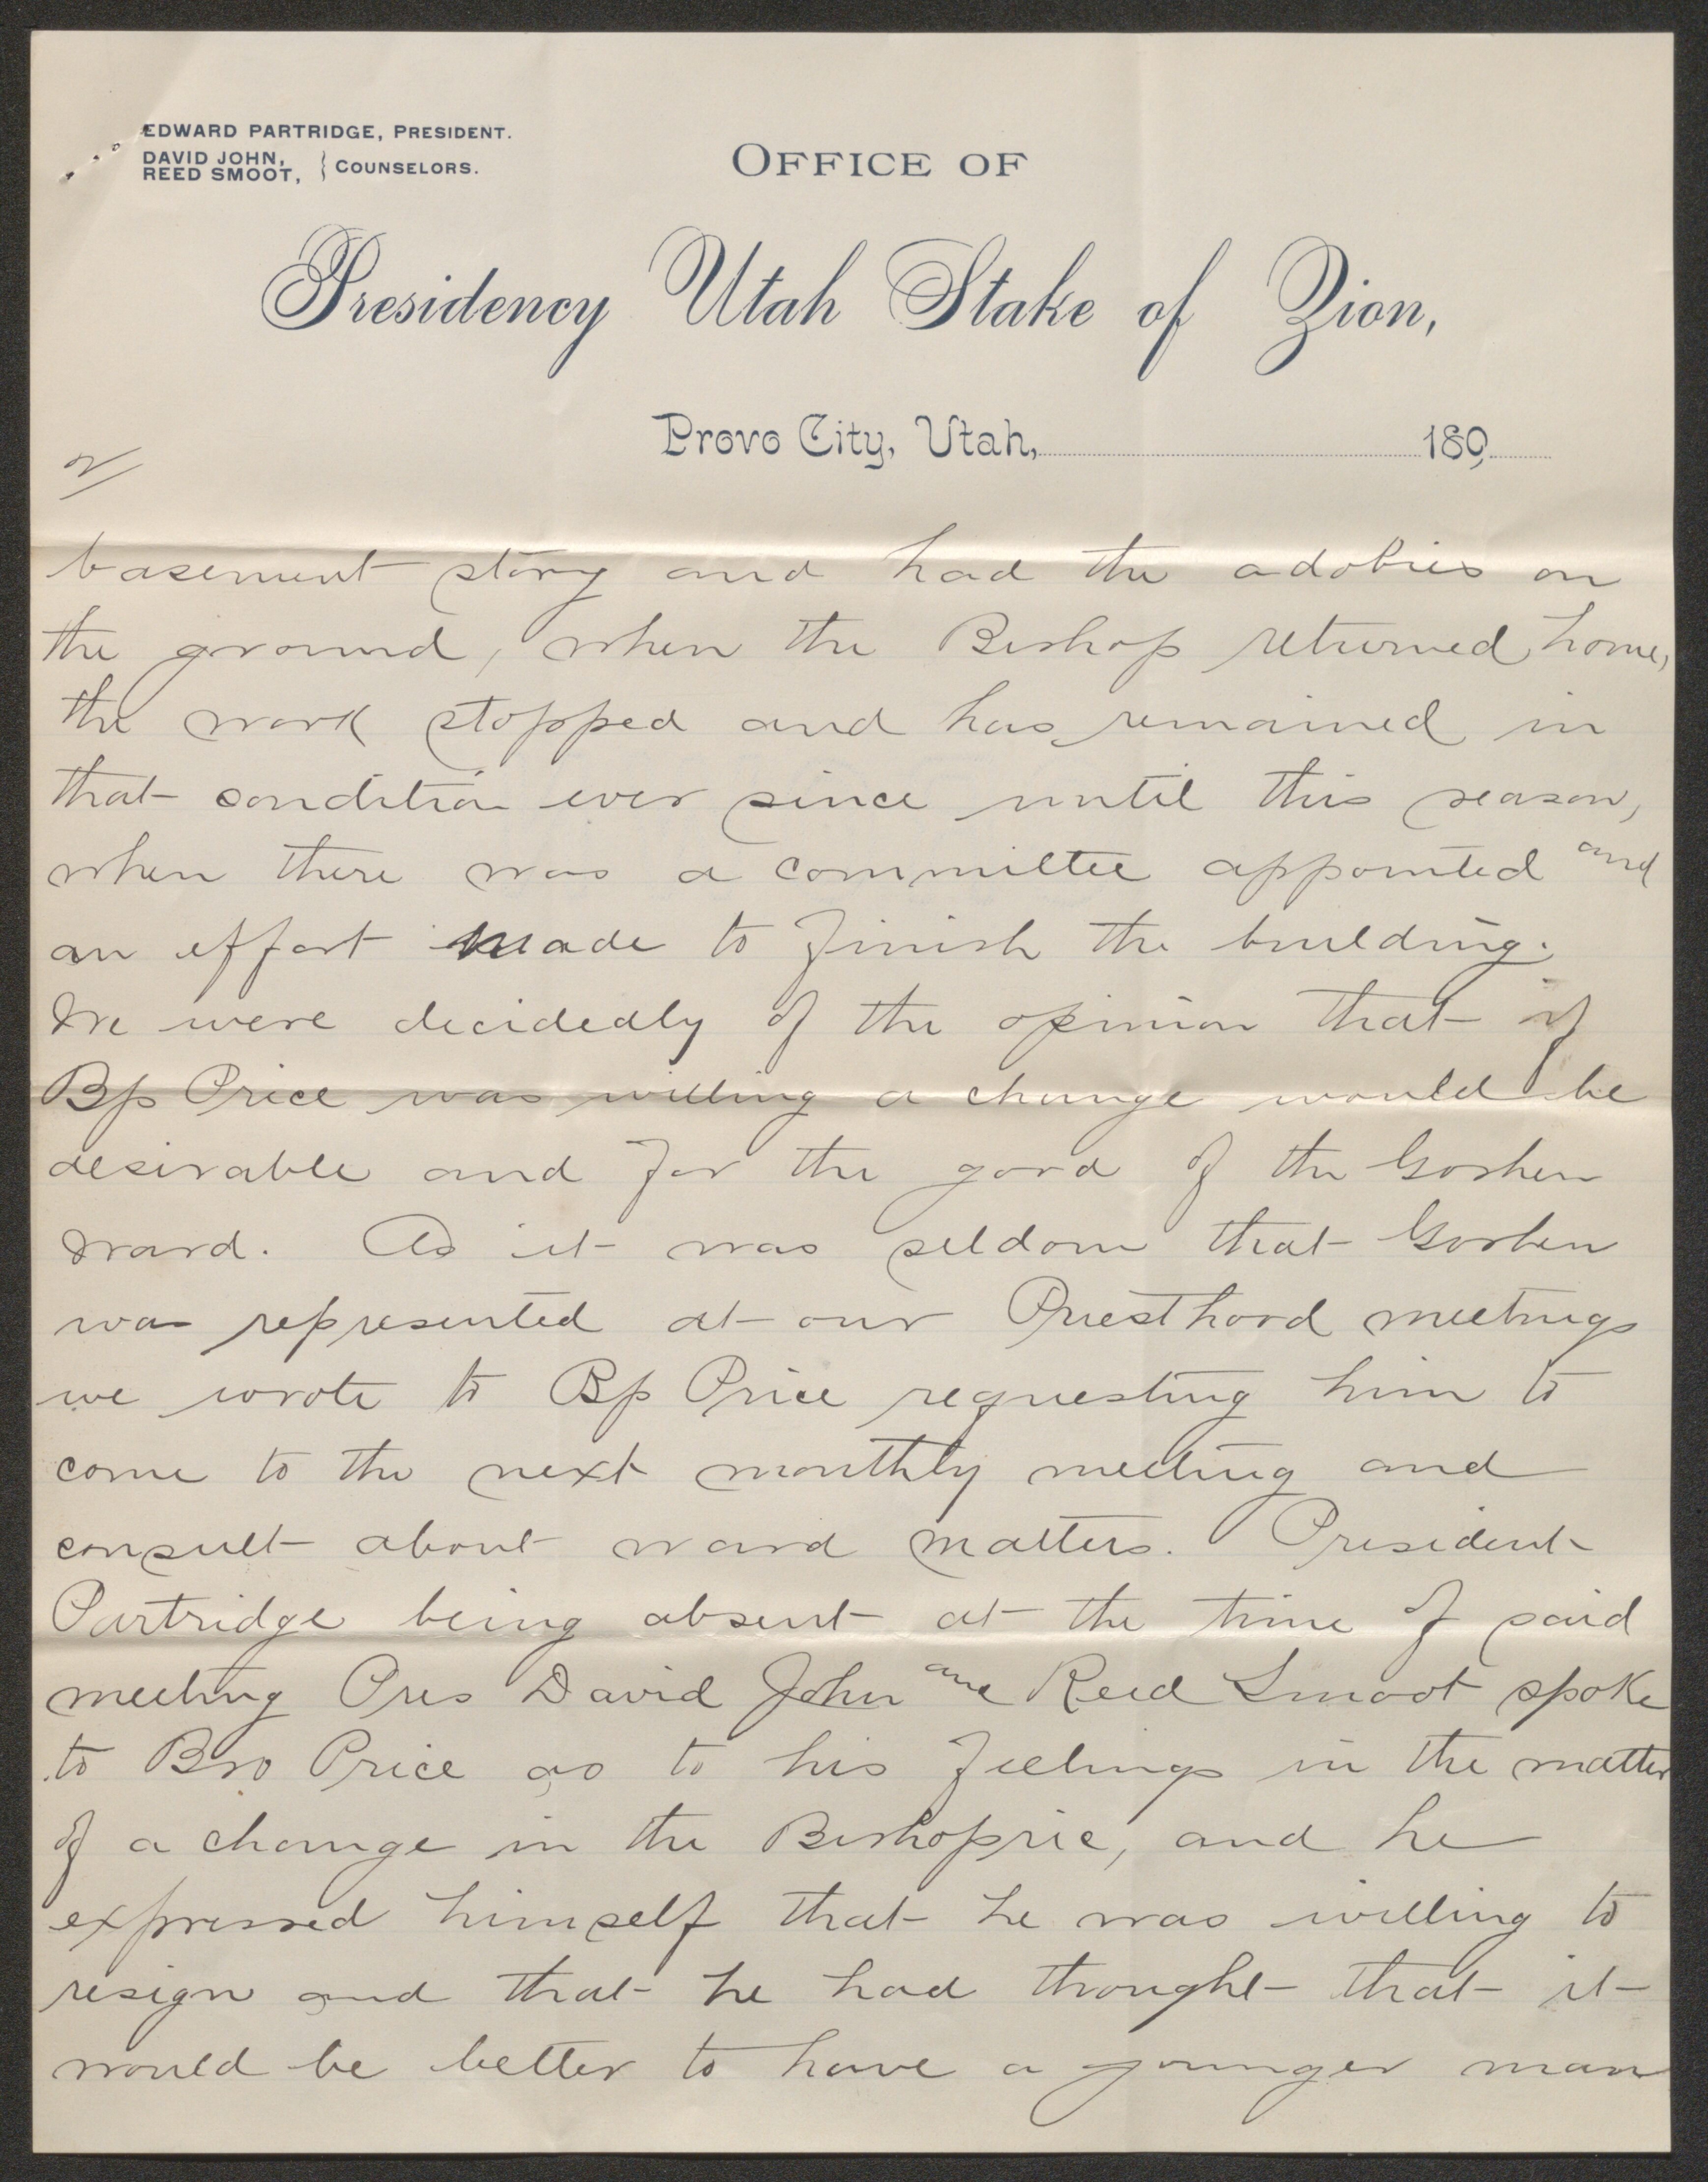 EDWARD PARTRIDGE, PRESIDENT.
DAVID JOHN,
REED SMOOT, } COUNSELORS.
OFFICE OF
Presidency Utah Stake of Zion,
Provo City, Utah, 189
2/
basement story and had the adobies on
the ground, when the Bishop returned home,
the work stopped and has remained in
that condition ever since until this season,
when there was a committee appointed and
an effort made to finish the building.
We were decidedly of the opinion that if
Bp Price was willing a change would be
desirable and for the good of the Goshen
Ward. As it was seldom that Goshen
was represented at our Priesthood meetings
we wrote to Bp Price requesting him to
come to the next monthly meeting and
consult about ward matters. President
Partridge being absent at the time of said
meeting Pres David John and Reed Smoot spoke
to Bro Price as to his feelings in the matter
of a change in the Bishopric, and he
expressed himself that he was willing to
resign and that he had thought that it
would be better to have a younger man